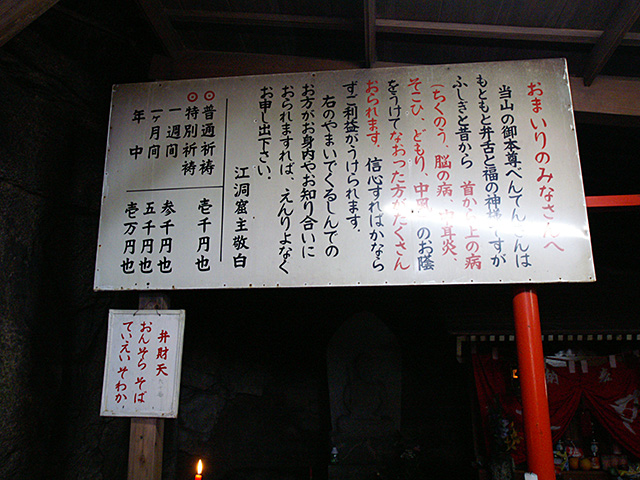 おまいりのみなさんへ
当山の御本尊べんてんさんは
もともと弁舌と福の神様ですが
ふしぎと昔から 首から上の病
(ちくのう、脳の病、中耳炎、
そこひ、どもり、中風)のお蔭
をうけてなおった方がたくさん
おられます。信心すればかなら
ずご利益がうけられます。
右のやまいでくるしんでの
お方がお身内やお知り合いに
おられますれば、えんりよなく
お申し出下さい。
江洞窟主敬白
◎普通祈祷 壱千円也
◎特別祈祷
一週間 参千円也
一ヶ月間 五千円也
年中 壱万円也
弁財天
おんそら そば
ていえい そわか